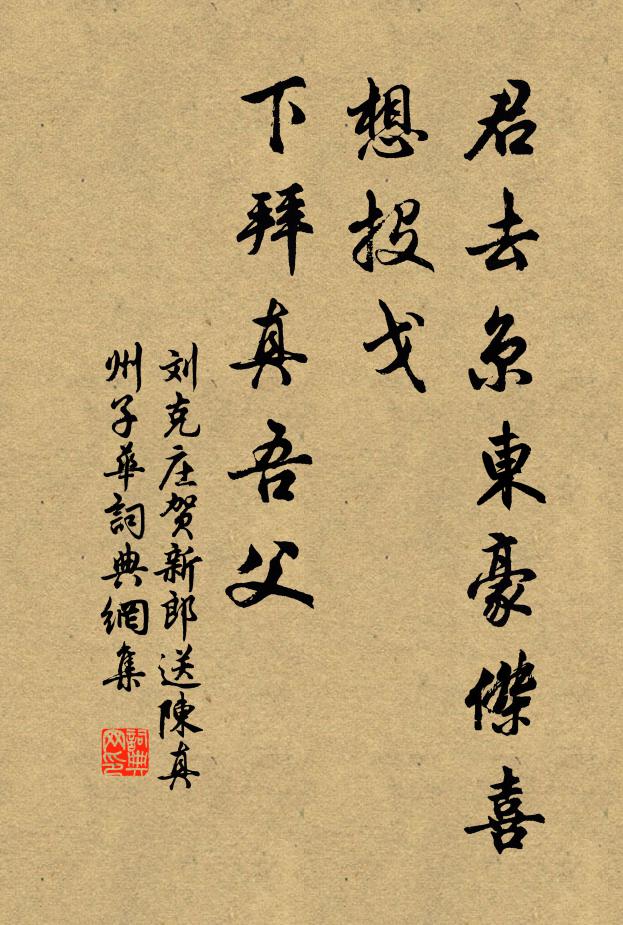 君去京東豪傑喜
想投戈
下拜真吾父
刘克庄贺新郎送陳真
州子華詞典網集
詞典网印